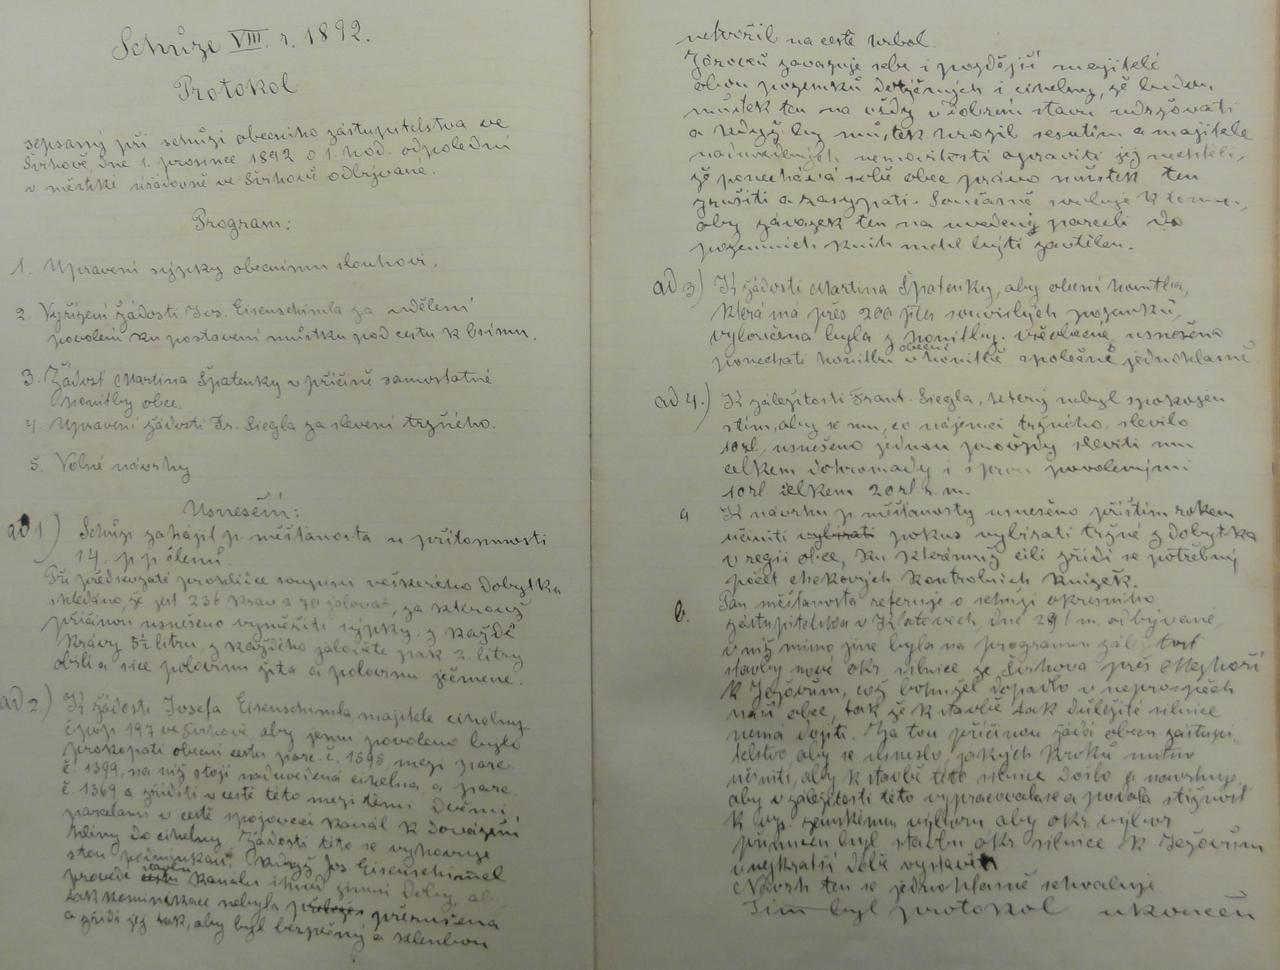 Schůze VIII. r. 1892.
Protokol
sepsaný při schůzi obecního zástupitelstva ve
Švihově, dne 1. prosince 1892 o 1. hod. odpolední
v městské úřadovně ve Švihově odbývané.
Program:
1. Upravení sýpky obecnímu slouhovi.
2. Vyřízení žádosti Jos. Eisenschimla za udělení
povolení ku postavení můstku pod cestu k
3. Žádosť Martina Špatenky v příčině samostatné
honitby obce.
4. Upravení žádosti Fr. Siegla za slevení tržného.
5. Volné návrhy
Usnešení:
ad 1) Schůzi zahájil p. měšťanosta u přítomnosti
14. p. p. členů.
Při předsevzaté prohlídce soupisu veškerého dobytka
shledáno, že jest 236 krav a jalovat, za kterouž
příčinou usnešeno vyměřiti sýpky z každé
krávy 5½ litru, z každého jalověte pak 2. litry
obilí a sice polovinu žita a polovinu ječmene.
ad 2.) K žádosti Josefa Eisenschimla, majitele cihelny
č. pop. 197 ve Švihově, aby jemu povoleno bylo
prokopati obecní cestu parc. č. 1898, mezi parc.
č. 1399, na níž stojí nadvedená cihelna, a parc.
č. 1369 a zříditi v cestě této mezi těmi dvěmi
parcelami v cestě spojovací kanál k dovážení
hlíny do cihelny. Žádosti této se vyhovuje
stou podmínkou, když Jos Eisenschimel
provede stavbu kanálu ihned zimní doby, aby
tak komunikace nebyla přerušena
a zřídí jej tak, aby byl bezpečný a klenbou
netvořil na cestě hrbol.
Zároveň zavazuje sebe i pozdější majitelé
obou pozemků dotčených i cihelny, že budou
můstek ten na vždy v dobrém stavu udržovati
a když by můstek hrozil sesutím a majitelé
nemovitosti opraviti jej nechtěli,
že ponechává sobě obec právo můstek ten
zrušiti a zasypati. Současně svoluje k tomu,
aby závazek ten na uvedený parceli do
pozemních knih mohl býti zavtělen.
ad 3) K žádosti Martina Špatenky, aby obecní honitba,
která má přes 200 jiter souvislých pozemků,
vyloučena byla z honitby všeobecné, usnešeno
ponechati honitbu obecní v honitbě společné jednohlasně
ad 4.) K záležitosti Frant. Siegla, kterej nebyl spokojen
stím, aby se mu, co nájemci tržného, slevilo
10 zl., usnešeno jednou pro vždy sleviti mu
celkem dohromady i s prvu povolenými
10 zl. celkem 20 zl. r. m.
a K návrhu p. měšťanosty usnešeno příštím rokem
učiniti vybírati pokus vybírati tržné z dobytka
v regii obce, ku kterémuž cíli zřídí se potřebný
počet chekových kontrolních knížek.
b. Pan měšťanosta referuje o schůzi okresního
zástupitelstva v Klatovech, dne 29/ m. odbývané,
v níž mimo jiné byla na programu záležitosť
stavby nové okr. silnice ze Švihova přes Mezhoří
k Ježovům, což bohužel dopadlo v neprospěch
naší obce, tak že k stavbě tak důležité silnice
nemá dojíti. Za tou příčinou žádá obecní zástupi-
telstvo, aby se usneslo, jakých kroků nutno
učiniti, aby k stavbě této silnice došlo a navrhuje,
aby v záležitosti této vypracovala se a podala stížnosť
k vys. zemskému výboru aby okr. výbor
přinucen byl stavbu okr. silnice k Ježovům
v nejkratší době vystavěti
Návrh ten se jednohlasně schvaluje
Tím byl protokol ukončen